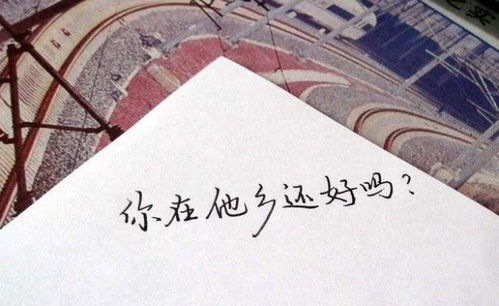 你在他乡还好吗?